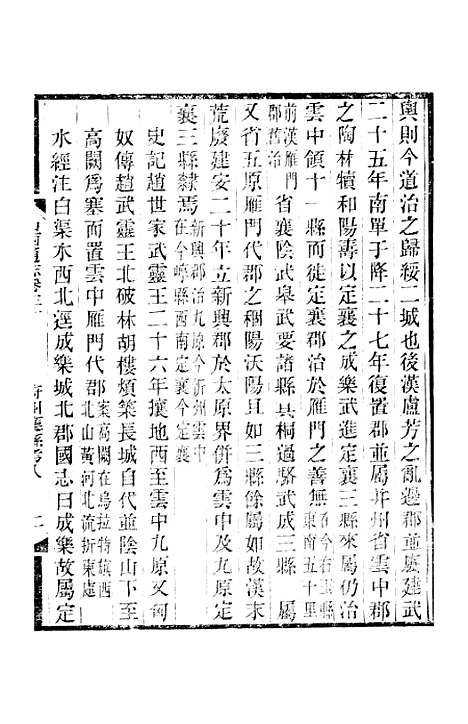 輿則今道治之歸綏一城也後漢盧芳之亂邊郡並廢建武
二十五年南單于降二十七年復置郡並屬并州省雲中郡
之陶林犢和陽壽以定襄之成樂武進定襄三縣來屬仍治
雲中領十一縣而徙定襄郡治於雁門之善無在今右玉縣東南五十里
前漢雁門郡舊治省襄陰武皋武要諸縣其桐過駱武成三縣屬
又省五原雁門代郡之稒陽沃陽且如三縣餘屬如故漢末
荒廢建安二十年立新興郡於太原界併爲雲中及九原定
襄三縣隸焉新興郡治九原今忻州雲中在今崞縣西南定襄今定襄
史記趙世家武靈王二十六年攘地西至雲中九原又匈
奴傳趙武靈王北破林胡樓煩築長城自代並陰山下至
高闕爲塞而置雲中雁門代郡案高闕在烏拉特旗西北山黃河北流折東處
水經注白渠水西北逕成樂城北郡國志曰成樂故屬定